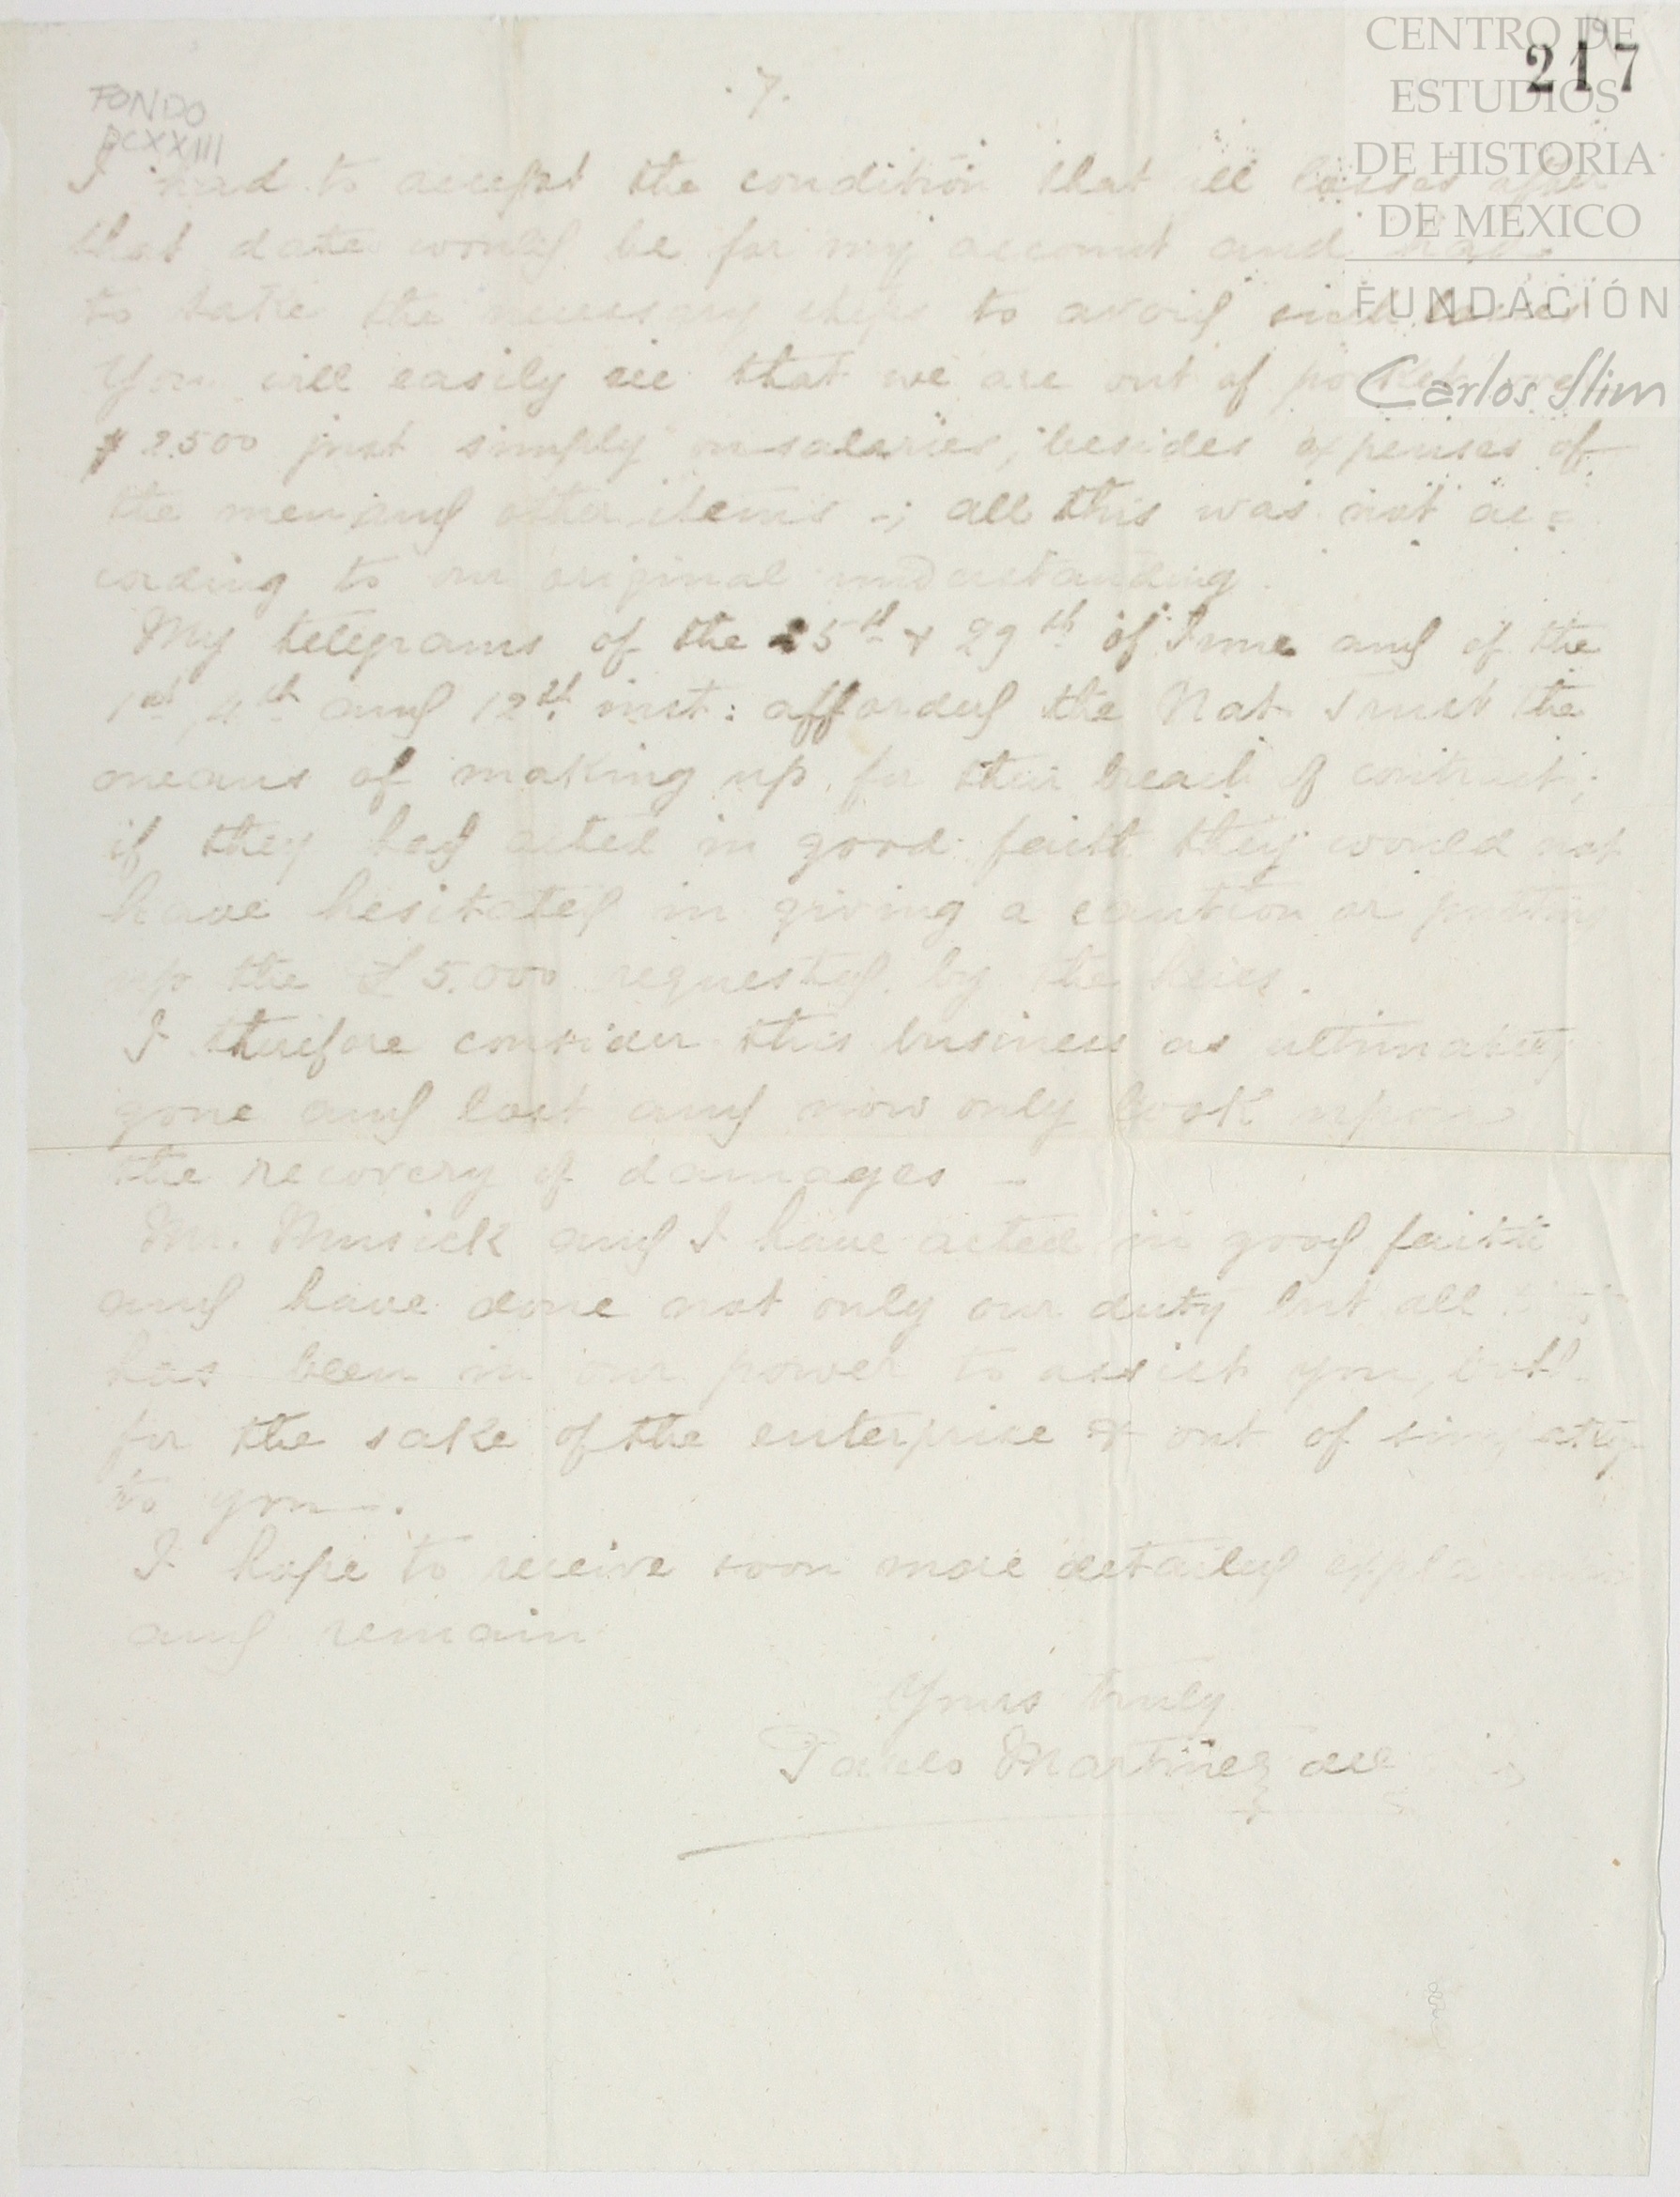 CENTRO DE
ESTUDIOS
DE HISTORIA
DE MEXICO
FUNDACIÓN
Carlos Slim
217
FONDO
DCXXIII
.7.
I had to accept the condition that all losses after
that date would be for my account and
to take the necessary steps to avoid such losses
You will easily see that we are out of pocket over
$ 2.500 just simply on salaries, besides expenses of
the men and other items -; all this was not ac=
cording to our original understanding.
My telegrams of the 25th & 29th of June and of the
1st, 4th and 12th inst: afforded the Nat Trust the
means of making up for their breach of contract;
if they had acted in good faith they would not
have hesitated in giving a caution or putting
up the £ 5.000 requested by the heirs.
I therefore consider this business as ultimately
gone and lost and now only look upon
the recovery of damages -
Mr. Musick and I have acted in good faith
and have done not only our duty but all
has been in our power to assist you, both
for the sake of the enterprise & out of simpathy
to you -.
I hope to receive soon more detailed
and remain
Yours truly
Pablo Martinez del